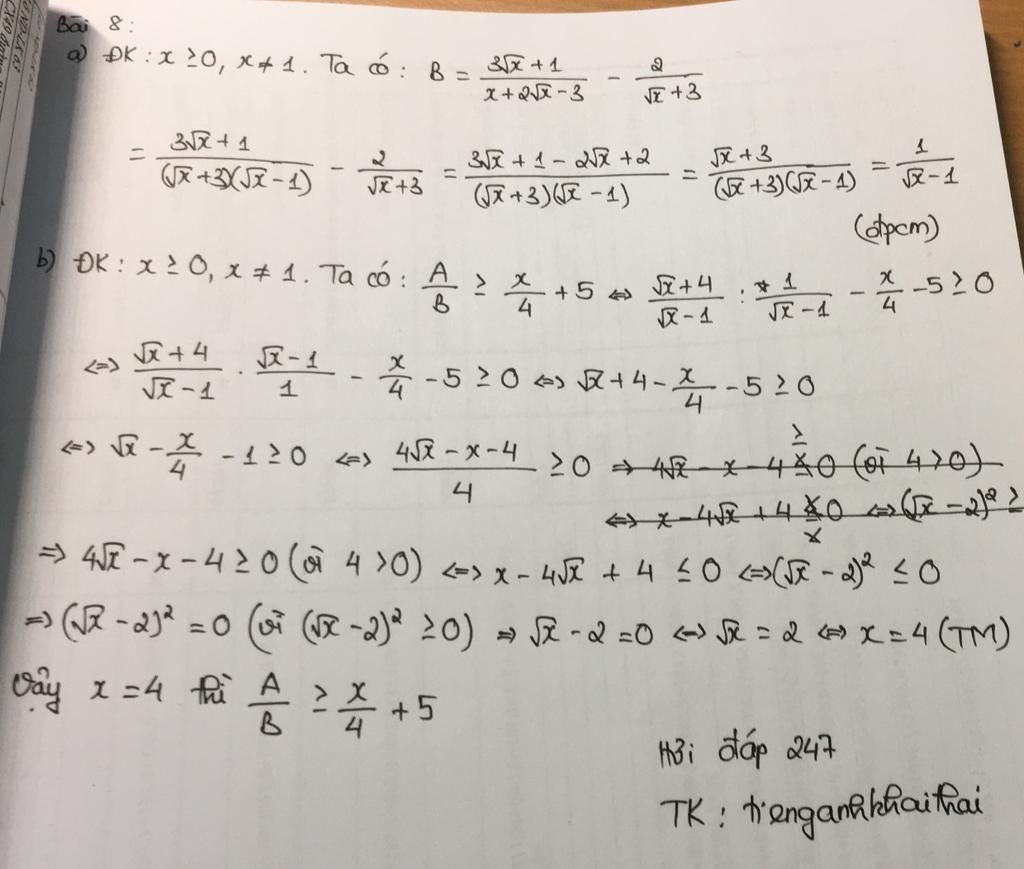 Bài 8:
a) ĐK: x ≥ 0, x ≠ 1. Ta có: B = (3√x + 1)/(x + 2√x - 3) - 2/(√x + 3)
= (3√x + 1)/((√x + 3)(√x - 1)) - 2/(√x + 3) = (3√x + 1 - 2√x + 2)/((√x + 3)(√x - 1)) = (√x + 3)/((√x + 3)(√x - 1)) = 1/(√x - 1)
(đpcm)
b) ĐK: x ≥ 0, x ≠ 1. Ta có: A/B ≥ x/4 + 5 ⇔ (√x + 4)/(√x - 1) : 1/(√x - 1) - x/4 - 5 ≥ 0
⇔ (√x + 4)/(√x - 1) . (√x - 1)/1 - x/4 - 5 ≥ 0 ⇔ √x + 4 - x/4 - 5 ≥ 0
⇔ √x - x/4 - 1 ≥ 0 ⇔ (4√x - x - 4)/4 ≥ 0 ⇒ 4√x - x - 4 ≥ 0 (vì 4 > 0)
⇔ x - 4√x + 4 ≥ 0 ⇔ (√x - 2)² ≥
⇒ 4√x - x - 4 ≥ 0 (vì 4 > 0) ⇔ x - 4√x + 4 ≤ 0 ⇔ (√x - 2)² ≤ 0
⇒ (√x - 2)² = 0 (vì (√x - 2)² ≥ 0) ⇒ √x - 2 = 0 ⇔ √x = 2 ⇔ x = 4 (TM)
Vậy x = 4 thì A/B ≥ x/4 + 5
Hỏi đáp 247
TK: tienganhkhaithai